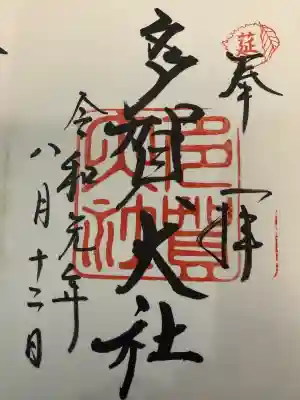 莚
奉拝
多賀大社
令和元年
八月十二日